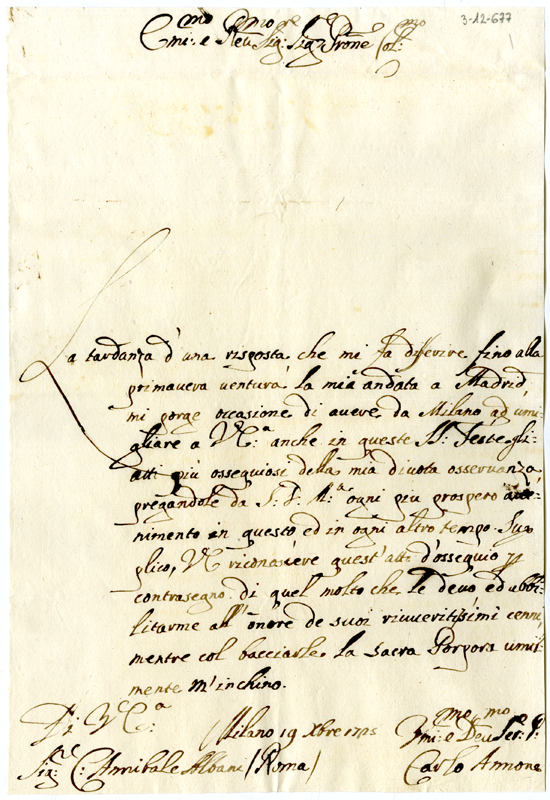 3-12-677
Emi:mo e Reu:mo Sig:re Sig:re Prone Col:mo
La tardanza d'una risposta che mi fa diferire fino alla
primavera ventura la mia andata a Madrid,
mi porge occasione di avere da Milano ad umi-
gliare a V.E.a anche in queste S.te Feste gli
atti più ossequiosi della mia divota osservanza
pregandole da S. D. M.tà ogni piu prospero
nimento in questo ed in ogni altro tempo. Sup
plico, V.E. riconoscere quest'atti d'ossequio p
contrasegno di quel molto che le devo, ed abbi-
litarme all'onore de suoi riveritissimi cenni,
mentre col bacciarle la sacra Porpora umil-
mente m'inchino.
Di V.E.a
Milano 19 Xbre 1725
Umi:mo e Deu:mo Ser:re
Sig:re C: Annibale Albani (Roma)
Carlo Annone